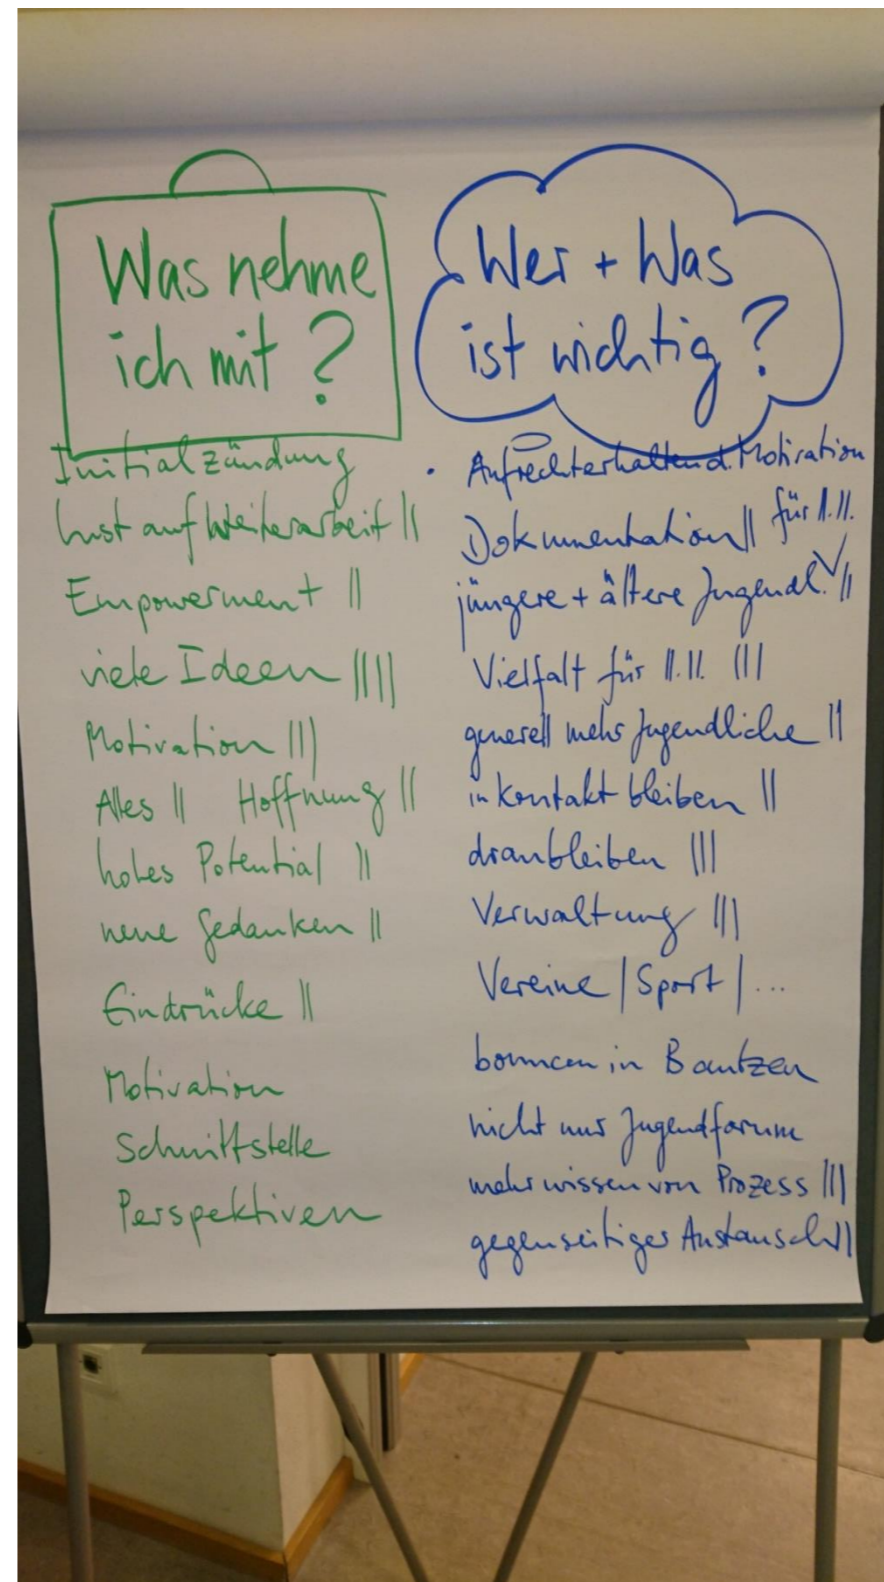 Was nehme
ich mit ?
Initialzündung
Lust auf Weiterarbeit ||
Empowerment ||
viele Ideen ||||
Motivation |||
Alles || Hoffnung ||
hohes Potential ||
neue Gedanken ||
Eindrücke ||
Motivation
Schnittstelle
Perspektiven
Wer + Was
ist wichtig ?
• Aufrechterhalten d. Motivation
Dokumentation || für 11.11.
jüngere + ältere Jugendl. ||
Vielfalt für 11.11. |||
generell mehr Jugendliche ||
in Kontakt bleiben ||
dranbleiben |||
Verwaltung |||
Vereine | Sport | ...
bouncen in Bautzen
nicht nur Jugendforum
mehr wissen von Prozess |||
gegenseitiger Austausch ||